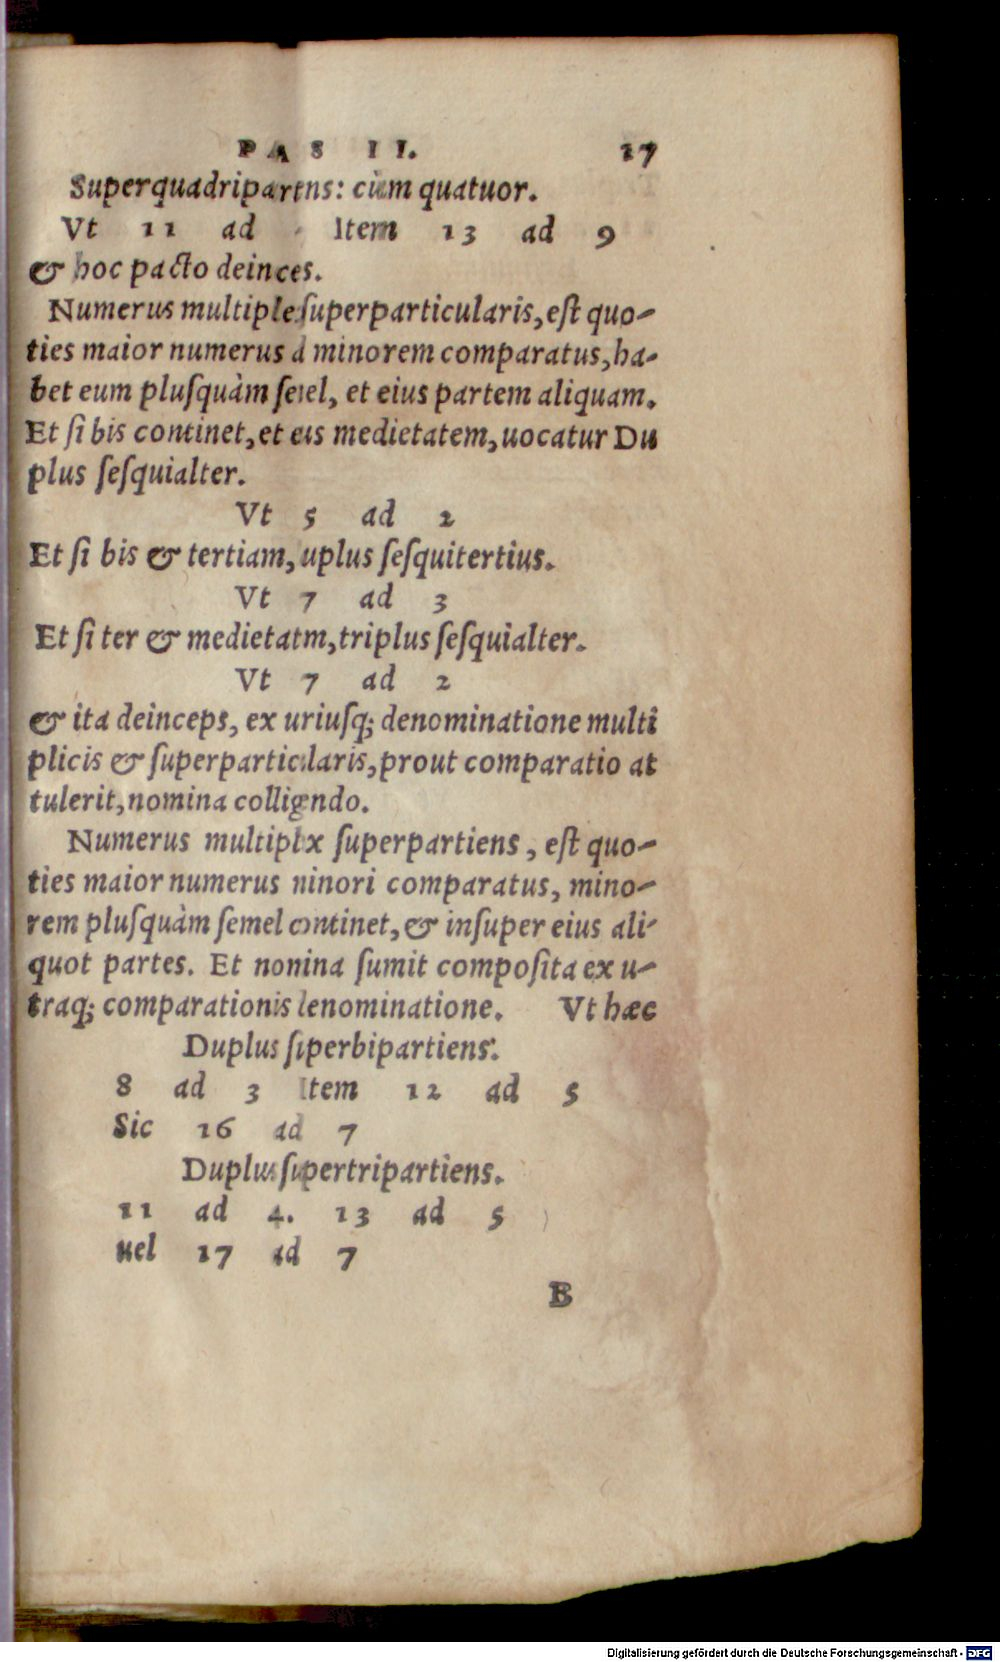 PAS II. 17
Superquadripartens: cùm quatuor.
Vt 11 ad Item 13 ad 9
& hoc pacto deinces.
Numerus multiple ſuperparticularis, eſt quo-
ties maior numerus a minorem comparatus, ha-
bet eum pluſquàm ſemel, et eius partem aliquam.
Et ſi bis continet, et eius medietatem, uocatur Du
plus ſeſquialter.
Vt 5 ad 2
Et ſi bis & tertiam, uplus ſeſquitertius.
Vt 7 ad 3
Et ſi ter & medietatm, triplus ſeſquialter.
Vt 7 ad 2
& ita deinceps, ex uriuſq; denominatione multi
plicis & ſuperparticularis, prout comparatio at
tulerit, nomina colligndo.
Numerus multiplx ſuperpartiens, eſt quo-
ties maior numerus ninori comparatus, mino-
rem pluſquàm ſemel continet, & inſuper eius ali-
quot partes. Et nonina ſumit compoſita ex u-
traq; comparationis denominatione. Vt hæc
Duplus ſuperbipartiens.
8 ad 3 Item 12 ad 5
Sic 16 ad 7
Duplus ſupertripartiens.
11 ad 4. 13 ad 5
uel 17 ad 7
B
Digitalisierung gefördert durch die Deutsche Forschungsgemeinschaft - DFG